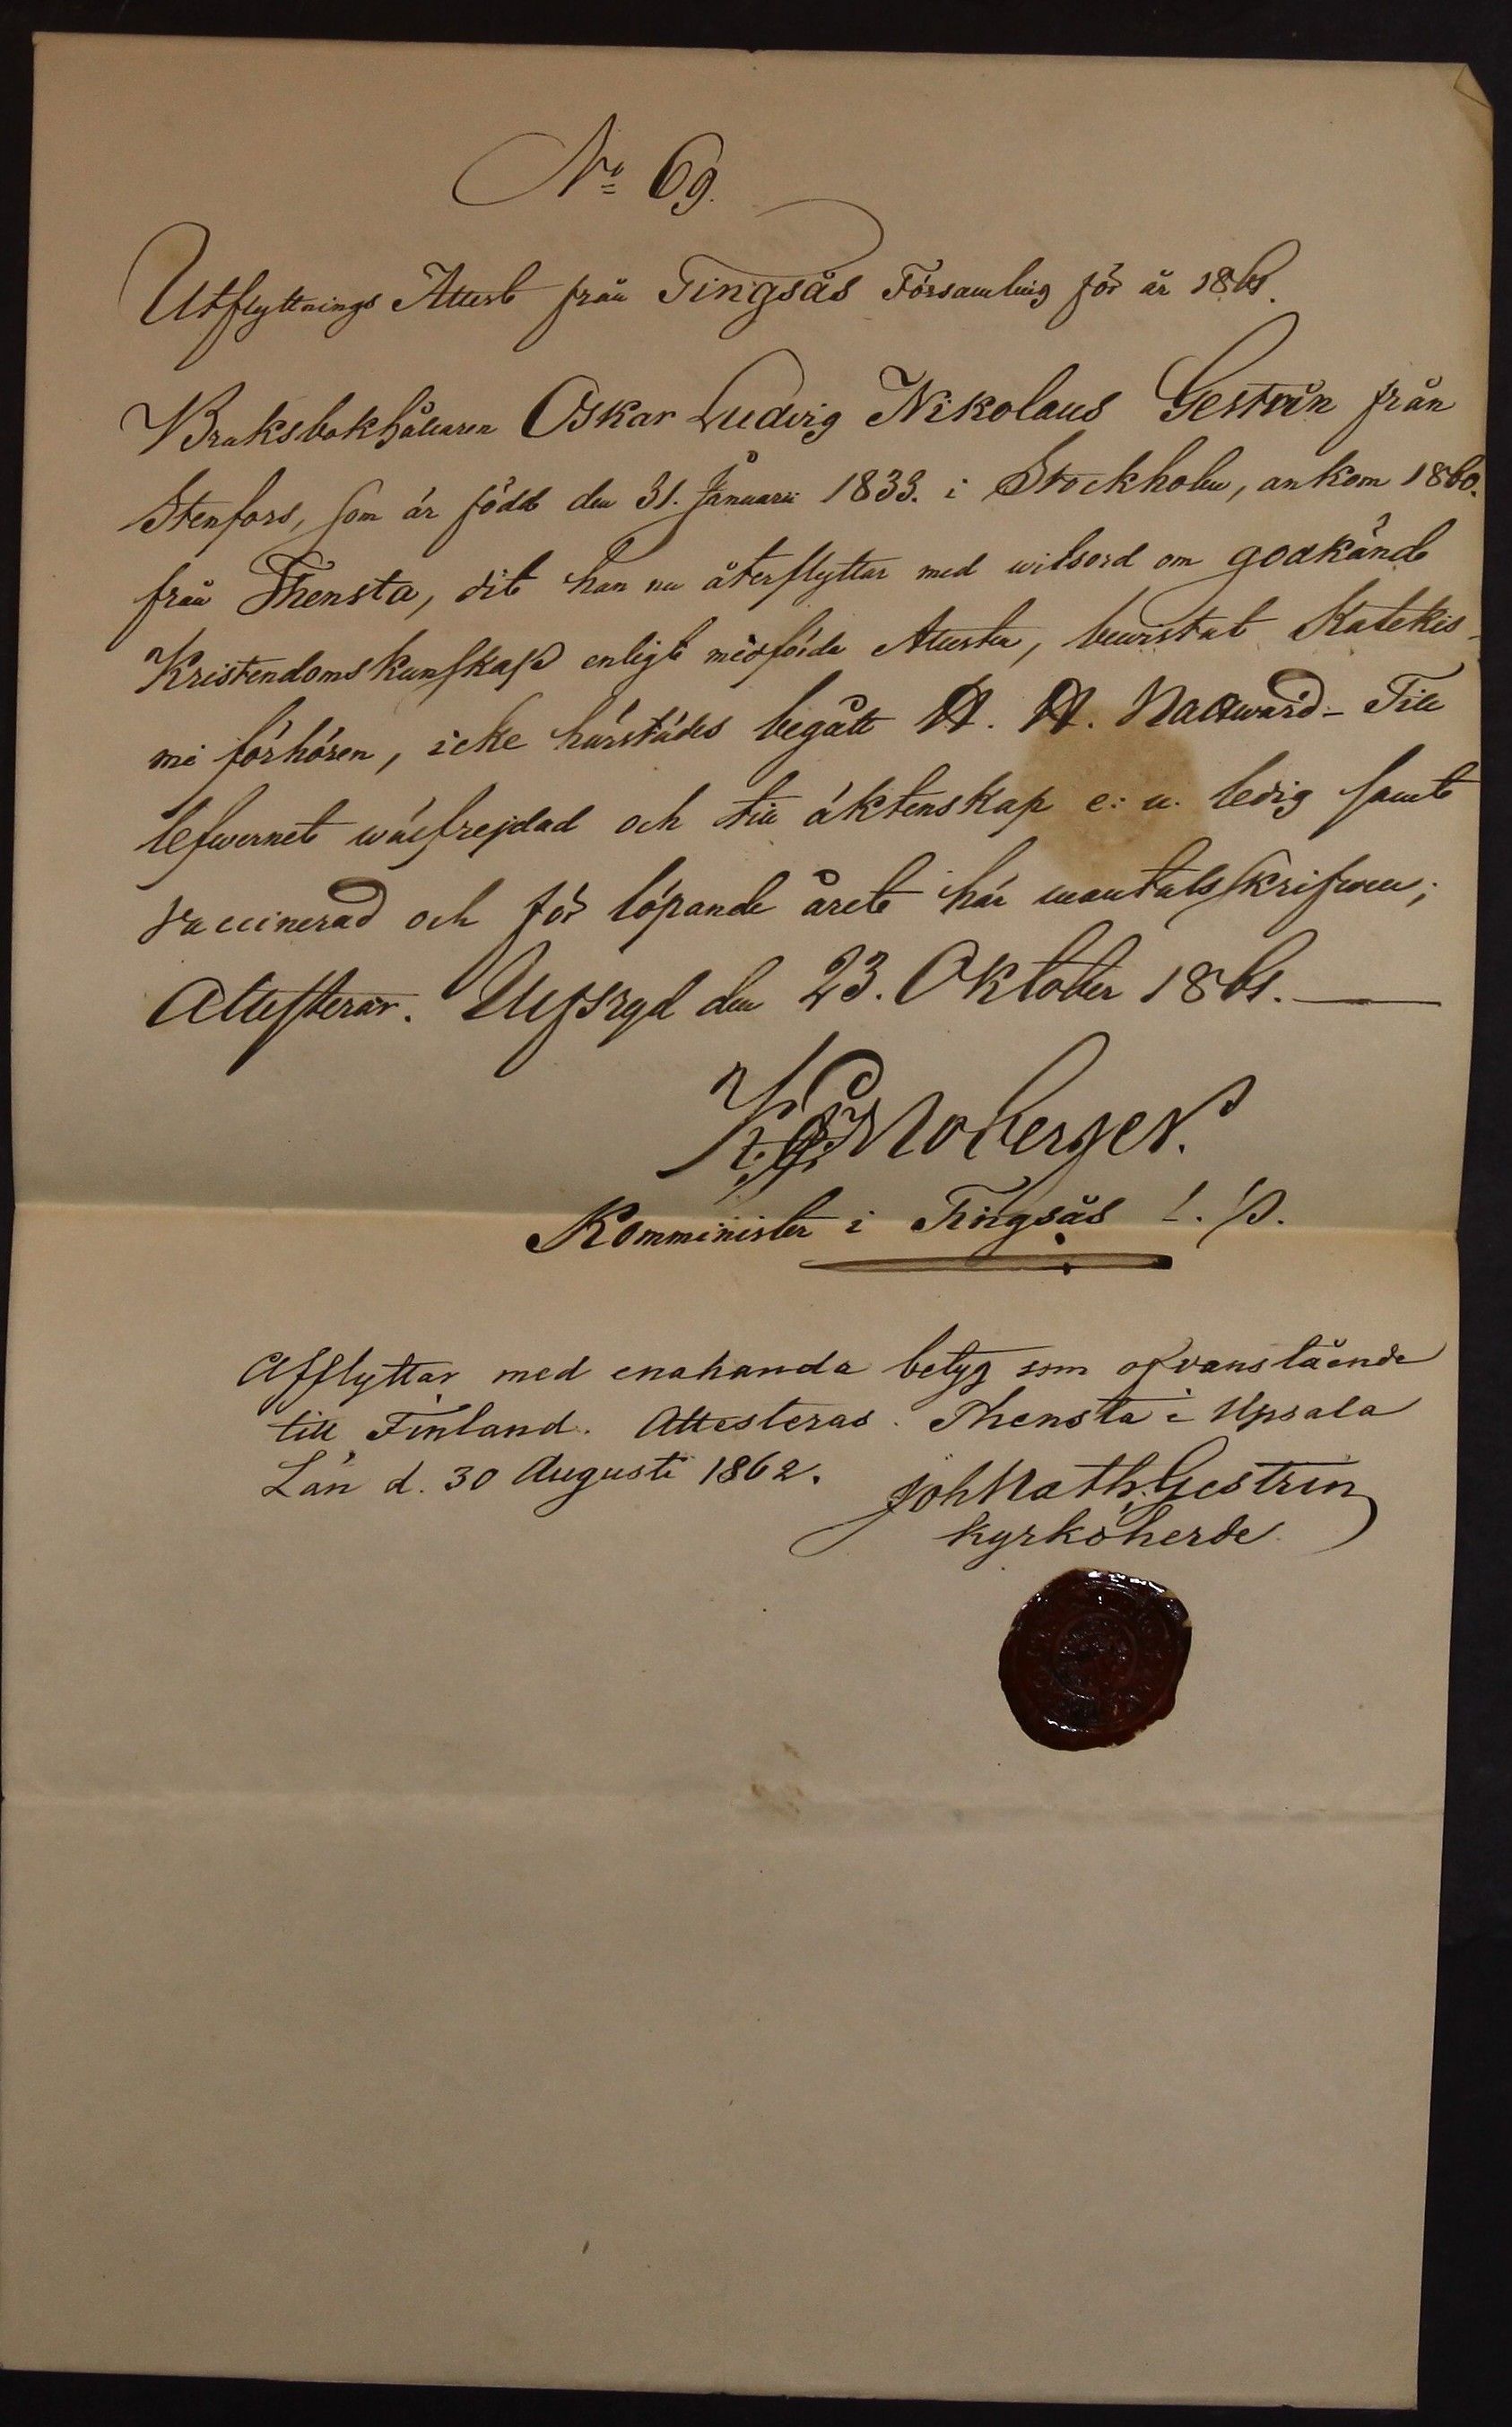 No 69.
Utflyttnings Attest från Tingsås Församling för år 1861.
Bruksbokhållaren Oskar Ludvig Nikolaus Gestrin från
Stenfors, som är född den 31. Januarii 1833. i Stockholm, ankom 1860.
från Thensta, dit han nu återflyttar med witsord om godkänd
Kristendomskunskap enligt medförda Attester, bewistat Katekis-
mi förhören, icke härstädes begått H. H. Nattward – Till
lefwernet wälfrejdad och till äktenskap e: u. ledig samt
vaccinerad och för löpande året här mantalsskrifwen;
Attesterar. Urshult den 23. Oktober 1861. —
Moberger.
Komminister i Tingsås L. P.
Afflyttar med enahanda betyg som ofvanstående
till Finland. Attesteras. Thensta i Upsala
Län d. 30 Augusti 1862.
Joh Math. Gestrin
Kyrkoherde